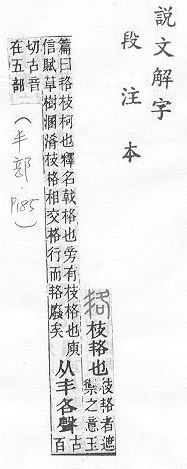 說文解字
段注本
枝也
枝者遮
之意玉
篇曰枝柯也釋名戟格也旁有枝格也庾
信賦草樹溷淆枝格相交格行而廢矣
从丯各聲
古百
切古音
在五部
(丯部.P185)